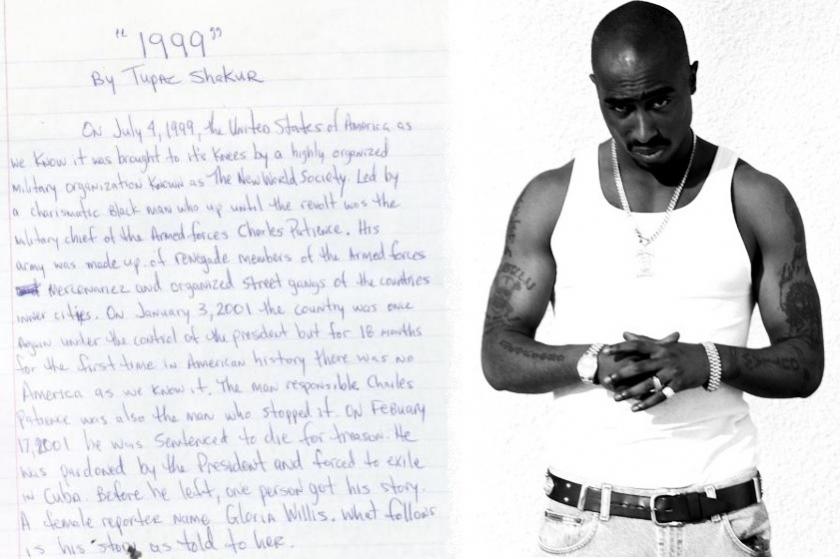 "1999"
By Tupac Shakur
On July 4, 1999, the United States of America as
we know it was brought to it's knees by a highly organized
military organization known as The New World Society. Led by
a charismatic Black man who up until the revolt was the
military chief of the Armed forces Charles Patience. His
army was made up of renegade members of the Armed forces
Mercenariez and organized street gangs of the countries
inner cities. On January 3, 2001 the country was once
again under the control of the president but for 18 months
for the first time in American history there was no
America as we knew it. The man responsible Charles
Patience was also the man who stopped it. On Febuary
17, 2001 he was sentenced to die for treason. He
was pardoned by the President and forced to exile
in Cuba. Before he left, one person got his story.
A female reporter name Gloria Willis. What follows
is his story as told to her.